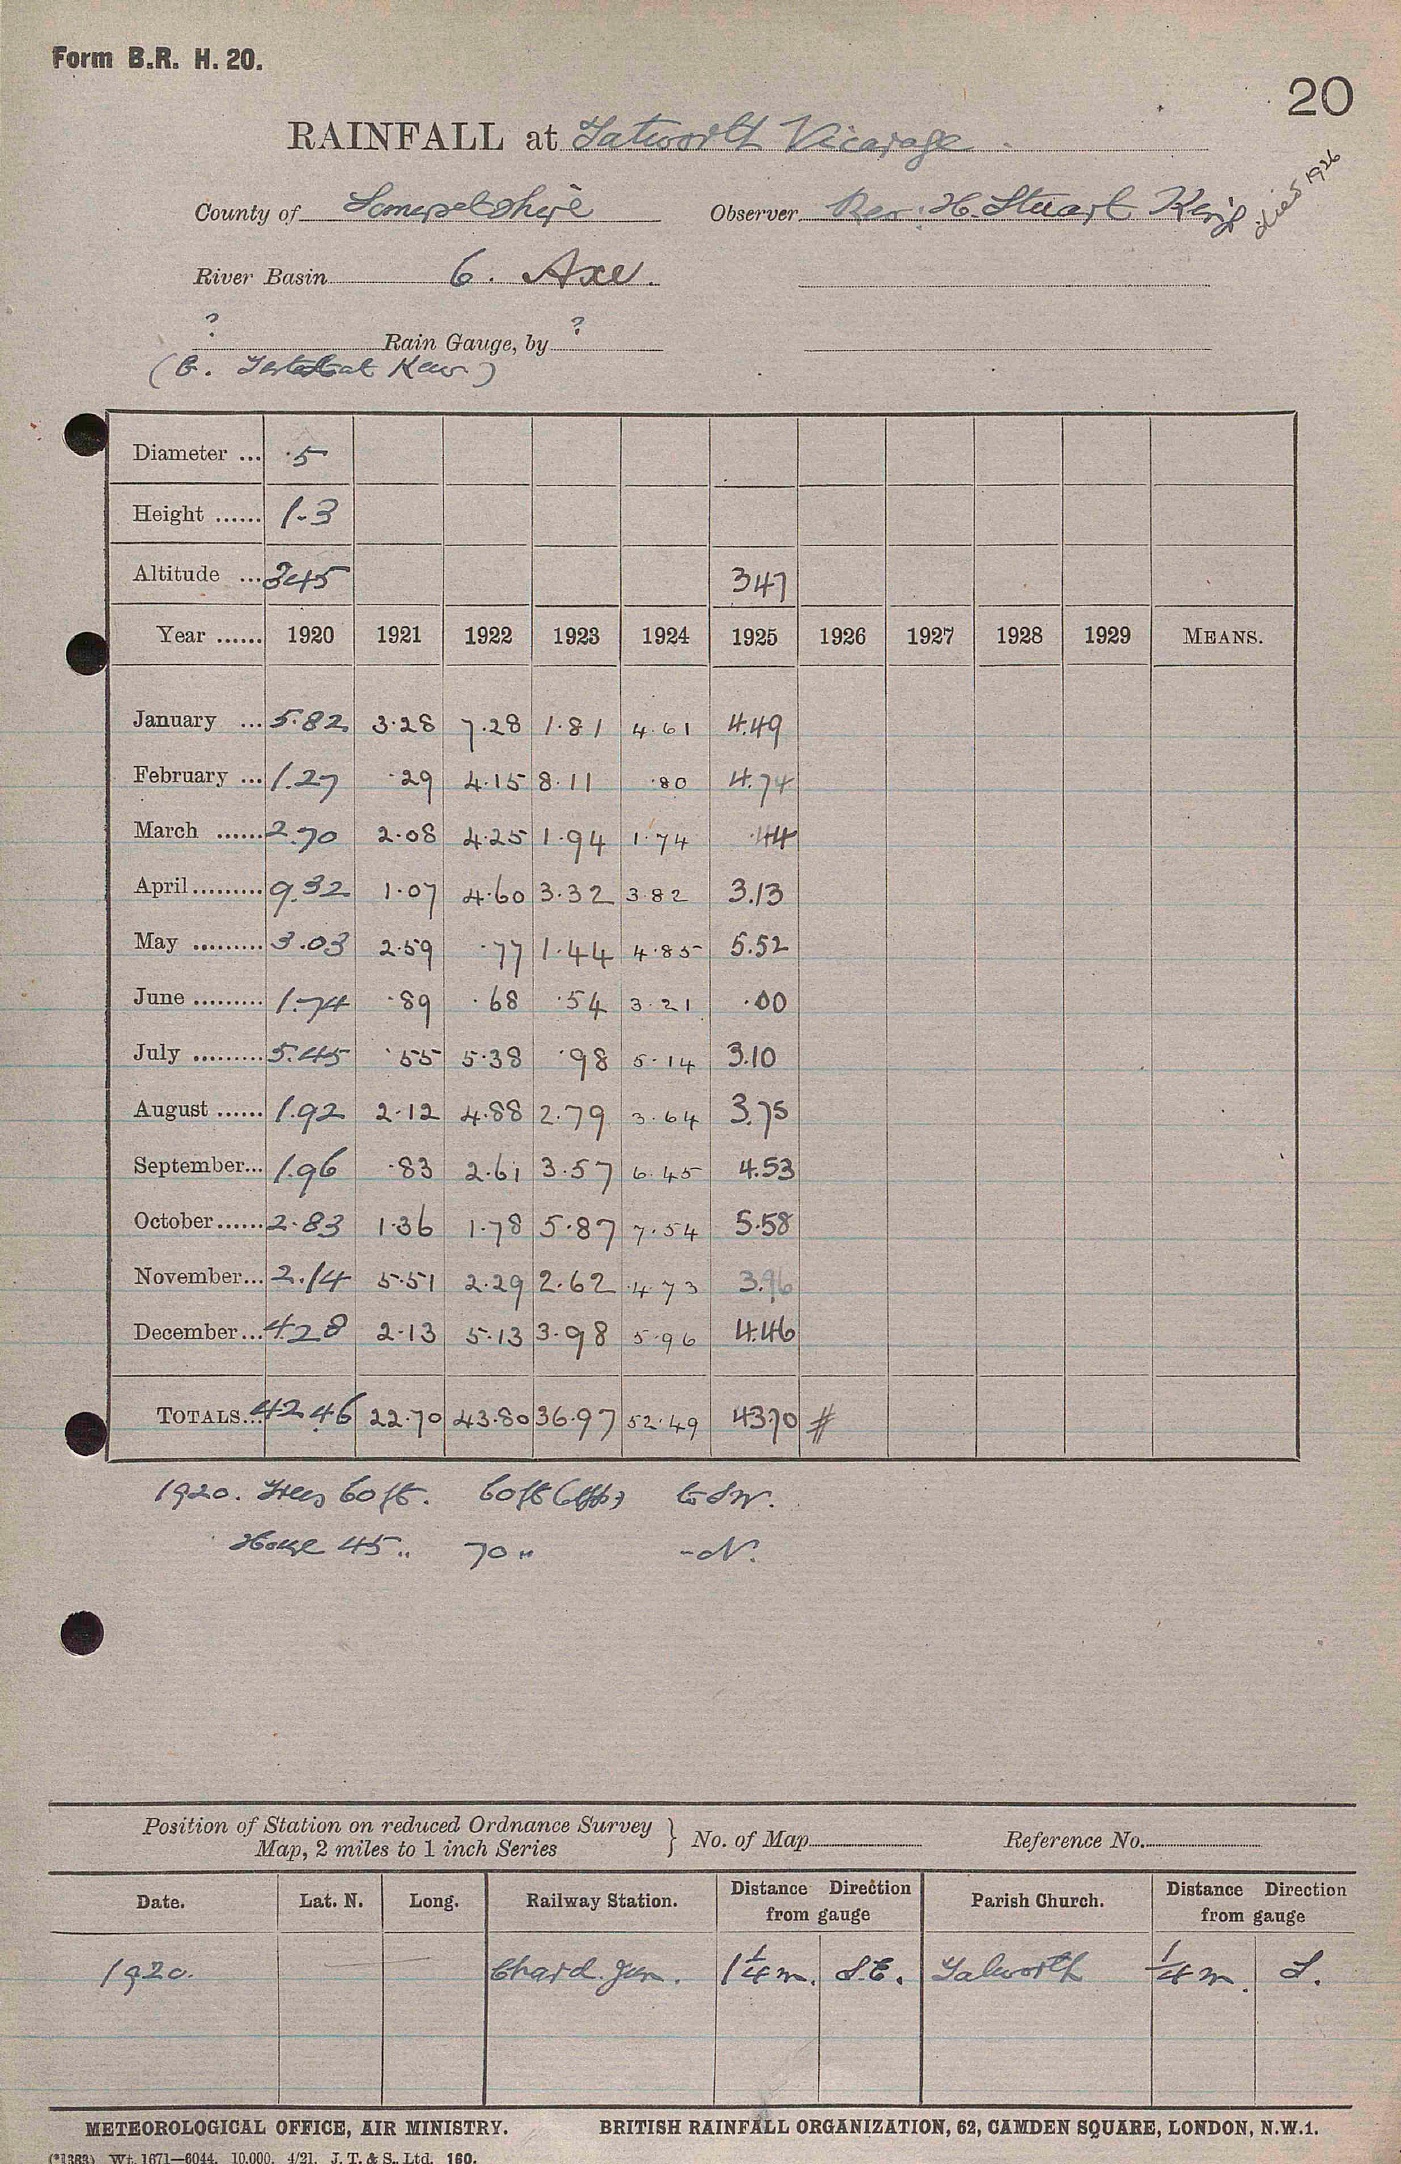 Form B.R. H. 20.
20
RAINFALL at Tatworth Vicarage.
County of Somersetshire Observer Rev. H. Stuart King died 1926
River Basin 6. Axe.
? Rain Gauge, by ?
(B. Tested at Kew)
Diameter ... 5
Height ...... 1-3
Altitude ... 345 347
Year ...... 1920 1921 1922 1923 1924 1925 1926 1927 1928 1929 MEANS.
January ... 5.82 3.28 7.28 1.81 4.61 4.49
February ... 1.27 .29 4.15 8.11 .80 4.74
March ...... 2.70 2.08 4.25 1.94 1.74 .44
April ......... 9.32 1.07 4.60 3.32 3.82 3.13
May ......... 3.03 2.59 .77 1.44 4.85 5.52
June ......... 1.74 .89 .68 .54 3.21 .00
July ......... 5.45 .55 5.38 .98 5.14 3.10
August ...... 1.92 2.12 4.88 2.79 3.64 3.75
September... 1.96 .83 2.61 3.57 6.45 4.53
October ...... 2.83 1.36 1.78 5.87 7.54 5.58
November... 2.14 5.51 2.29 2.62 4.73 3.96
December... 4.28 2.13 5.13 3.98 5.96 4.46
TOTALS... 42.46 22.70 43.80 36.97 52.49 43.70 #
1920. Trees 60 ft. 60 ft (off) to SW.
House 45 " 70 " - N.
Position of Station on reduced Ordnance Survey
Map, 2 miles to 1 inch Series } No. of Map Reference No.
Date. Lat. N. Long. Railway Station. Distance Direction from gauge Parish Church. Distance Direction from gauge
1920. Chard Jun. 1 1/4 m. S.E. Tatworth 1/4 m. S.
METEOROLOGICAL OFFICE, AIR MINISTRY. BRITISH RAINFALL ORGANIZATION, 62, CAMDEN SQUARE, LONDON, N.W.1.
(*1383) Wt. 1671—6044. 10,000. 4/21. J. T. & S., Ltd. 160.